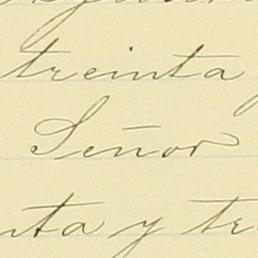 treinta
Señor
nta y tre